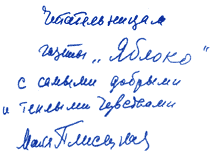 Читательницам
газеты „Яблоко"
с самыми добрыми
и теплыми чувствами
Майя Плисецкая